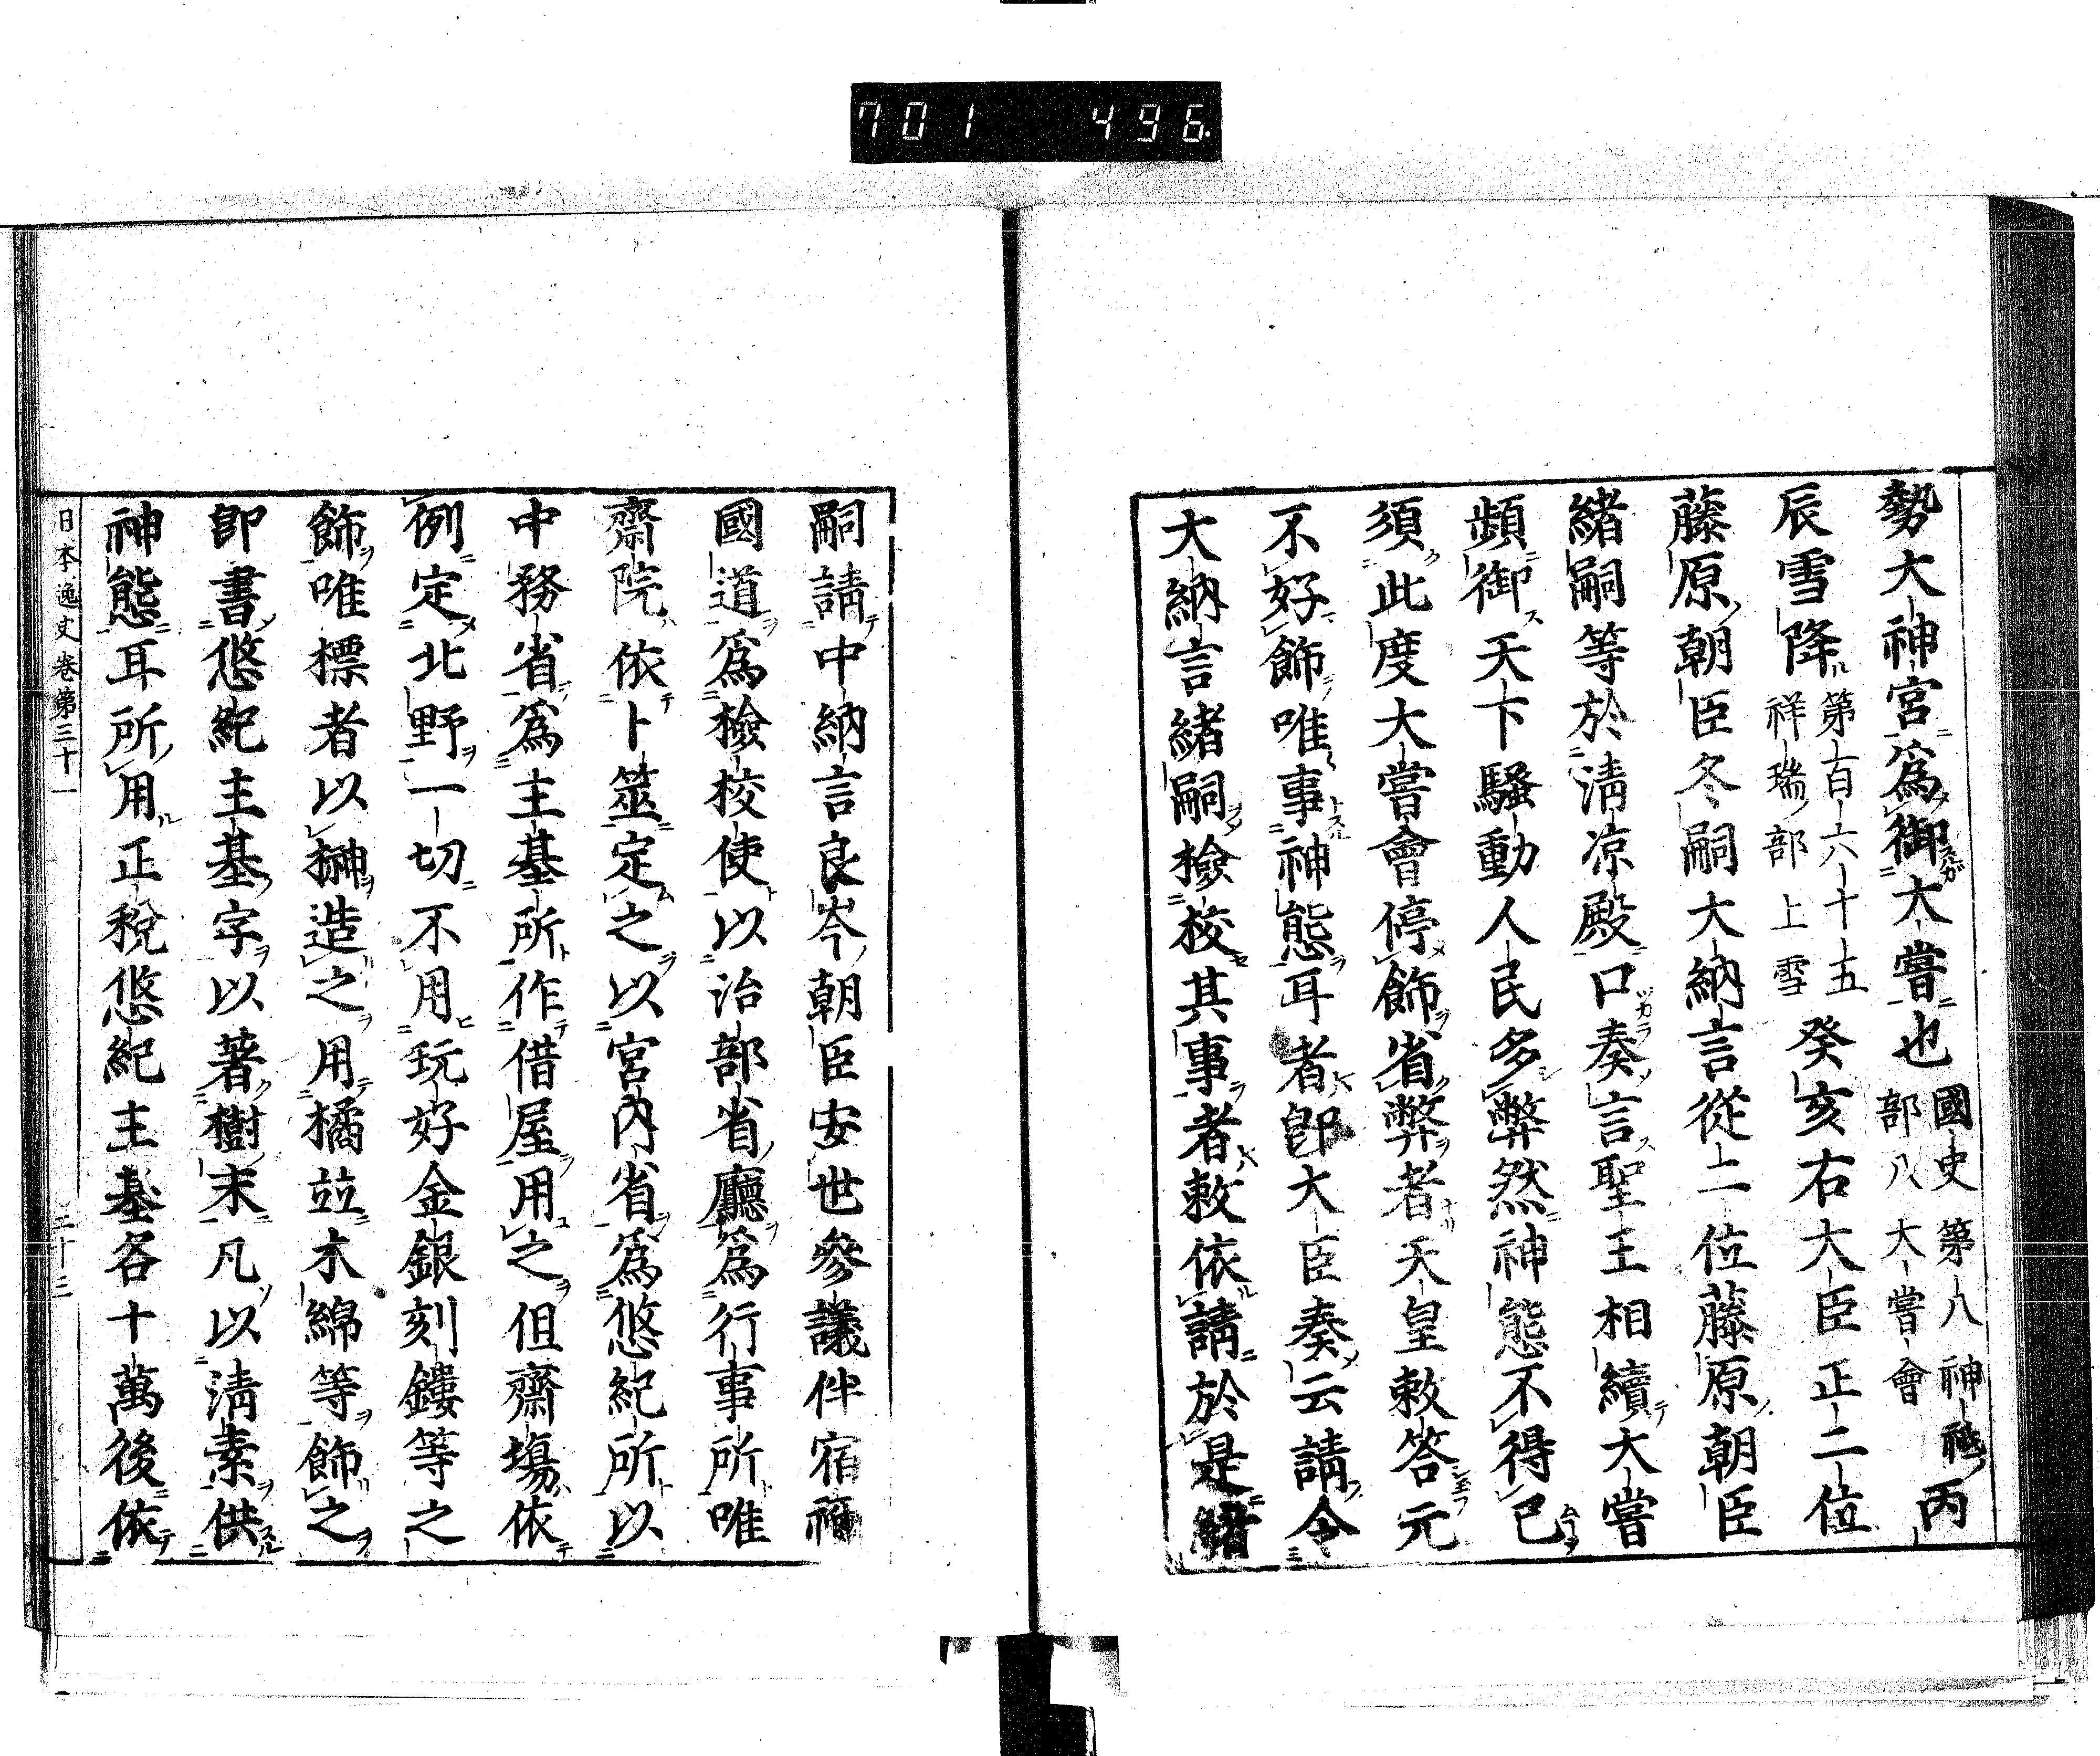 701 496.
勢大神宮爲御大嘗也國史第八神祇部八大嘗會丙
辰雪降第百六十五祥瑞部上雪癸亥右大臣正二位
藤原朝臣冬嗣大納言從二位藤原朝臣
緒嗣等於淸凉殿口奏言聖王相續大嘗
頻御天下騷動人民多弊然神態不得已
須此度大嘗會停飾省弊者天皇敕答元
不好飾唯事神態耳者卽大臣奏云請令
大納言緒嗣檢校其事者敕依請於是緒
嗣請中納言良岑朝臣安世參議伴宿禰
國道爲檢校使以治部省廳爲行事所唯
齋院依卜筮定之以宮內省爲悠紀所以
中務省爲主基所作借屋用之但齋場依
例定北野一切不用玩好金銀刻鏤等之
飾唯標者以榊造之用橘竝木綿等飾之
卽書悠紀主基字以著樹末凡以淸素供
神態耳所用正稅悠紀主基各十萬後依
日本逸史卷第三十一 二十三